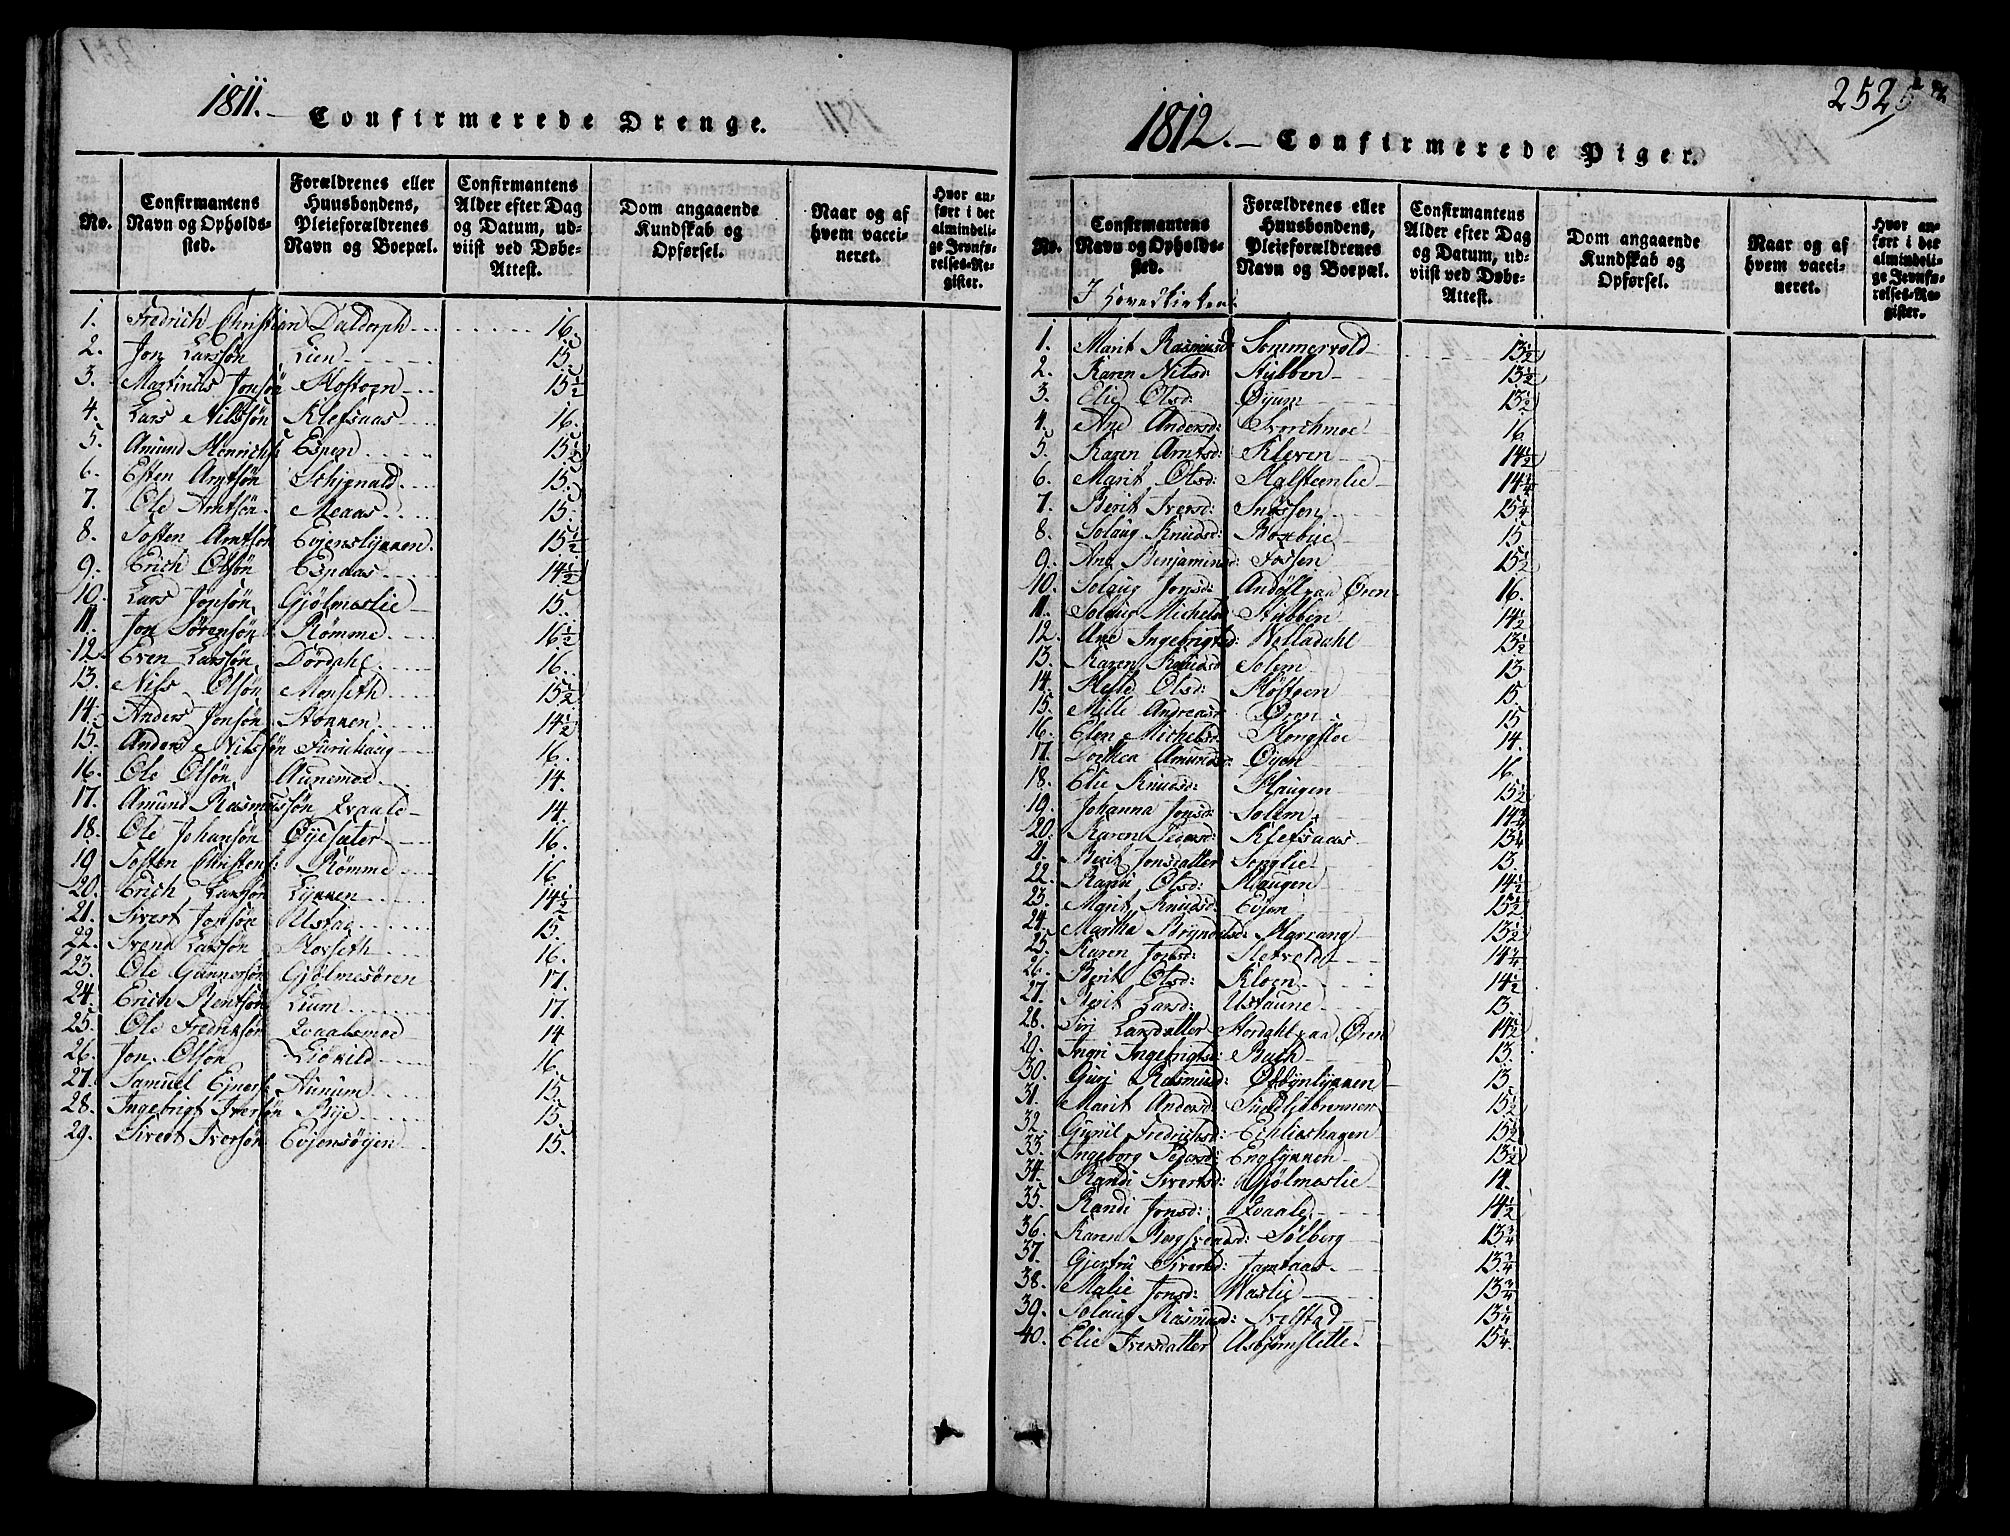 1811. — Confirmerede Drenge.
No.
Confirmantens Navn og Opholdssted.
Forældrenes eller Huusbondens, Pleieforældrenes Navn og Boepæl.
Confirmantens Alder efter Dag og Datum, udviist ved Døbe-Attest.
Dom angaaende Kundskab og Opførsel.
Naar og af hvem vaccineret.
Hvor anført i det almindelige Jevnførelses-Register.
1. Fredrich Christian Daldorph 16.
2. Jon Larssøn Lien 15.
3. Martinus Jonsøn Mostoen 15½
4. Lars Nilssøn Klefsaas 16.
5. Amund Henrichs Espen 15½
6. Esten Arntsøn 15.
7. Ole Arntsøn Meaas 15.
8. Toften Arntsøn Evjenslykken. 15½
9. Erich Olsøn Espaas 14½
10. Lars Jonsøn Gjølmeslie 15.
11. Jon Sørensøn Rømme 16½
12. Even Larssøn Dørdahl 16.
13. Nils Olsøn Monseth 15½
14. Anders Jonsøn Stokken 14½
15. Anders Nilssøn Furuhaug 16.
16. Ole Olsøn Aunemoe 14.
17. Amund Rasmussøn Qvaale 14.
18. Ole Johansøn Øyesæter 16.
19. Toften Christens: Rømme 16
20. Erich Larssøn Lykken 14½
21. Sivert Jonsøn Ustad 15.
22. Svend Larssøn Korseth 16.
23. Ole Gunnersøn Gjølmesøren 17.
24. Erich Bentsøn Lium 17.
25. Ole Fredriksøn Qvaalsmoe 14
26. Jon Olsøn 16.
27. Samuel Ejners: Aunum 15.
28. Ingebrigt Iversøn Rye 15.
29. Sivert Iversøn Evjensøyen 15.
252
1812. — Confirmerede Piger.
No.
Confirmantens Navn og Opholdssted.
Forældrenes eller Huusbondens, Pleieforældrenes Navn og Boepæl.
Confirmantens Alder efter Dag og Datum, udviist ved Døbe-Attest.
Dom angaaende Kundskab og Opførsel.
Naar og af hvem vaccineret.
Hvor anført i det almindelige Jevnførelses-Register.
I Hovedkirken.
1. Marit Rasmusd: Sommervold 13½
2. Karen Nilsd: Stubben 13½
3. Elie Olsd: Øyum 13½
4. Ane Andersd: Svorchmoe 16
5. Karen Arntsd: Kleven 14½
6. Marit Olsd: Halsteenlie 14¼
7. Berit Iversd: Snossen 15¼
8. Solaug Knudsd: Boxbue 15
9. Ane Benjaminsd: Fossen 15½
10. Solaug Jonsd: paa Øren 16.
11. Solaug Michelsd: Stubben 14½
12. Ane Ingebrigtsd: Holladahl 13½
13. Karen Knudsd: Solem 13
14. Helle Olsd: Mostoen 15.
15. Mille Andreasd: Øren 15
16. Elen Michelsd: Kongsloe 14.
17. Dorthea Amundsd: Øyen 16
18. Elie Knudsd: Haugen 15½
19. Johanna Jonsd: Solem 14¾
20. Karen Pedersd: Klefsaas 13¼
21. Berit Jonsdatter Songlie 13.
22. Randi Olsd: Haugen 14½
23. Marit Knudsd: Evjen 15½
24. Martha Bryndelsd: 13½
25. Karen Jonsd: Sletvold 14¼
26. Berit Olsd: Kloen 14½
27. Berit Larsd: Ustaune 13.
28. Siri Larsdatter Stordahl paa Øren 14½
29. Ingri Ingebrigtsd: Bach 13.
30. Guri Rasmusd: 13.
31. Marit Andersd: 15½
32. Gunil Fredrichsd: 15½
33. Ingeborg Pedersd: Englykken 13½
34. Randi Sivertsd: Gjølmeslie 14.
35. Randi Jonsd: Qvaale 14½
36. Karen Bergsvendsd: Solberg 13¾
37. Gjertru Sivertsd: Jamtaas 13¾
38. Malie Jonsd: Haslie 13¾
39. Solaug Rasmusd: Svelstad 13¼
40. Elie Iversdatter Asbjørnslette 15¼